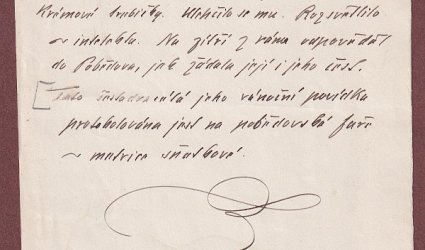 Krámové krabičky. Ulehčilo se mu. Rozsvětlilo
v intelektu. Na zítří z rána odpovědět
do Pobědova, jak žádala její i jeho čest.
Tato čistodra celá jeho vánoční povídka
protokolována jest na pobědovské faře
v matrice sňatkové.